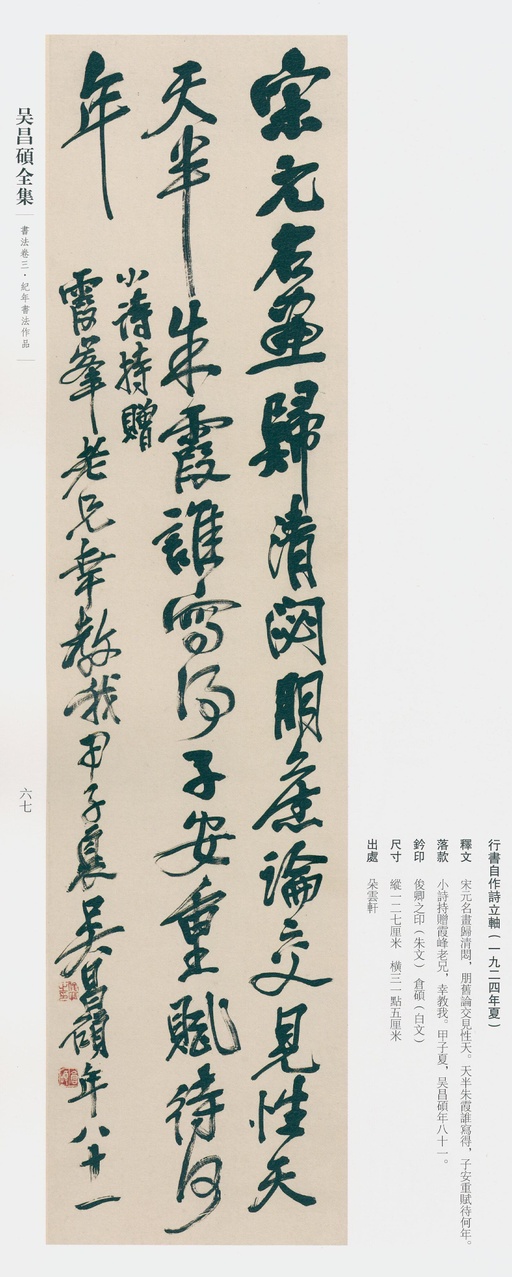 宋元名畫歸清閟朋舊論交見性天
天半朱霞誰寫得子安重賦待何
年
小詩持贈
霞峯老兄幸教我甲子夏吴昌碩年八十一
行書自作詩立軸（一九二四年夏）
釋文　宋元名畫歸清閟，朋舊論交見性天。天半朱霞誰寫得，子安重賦待何年。
落款　小詩持贈霞峰老兄，幸教我。甲子夏，吴昌碩年八十一。
鈐印　俊卿之印（朱文）　倉碩（白文）
尺寸　縱一二七厘米　橫三一點五厘米
出處　朵雲軒
吴昌碩全集
書法卷三·紀年書法作品
六七